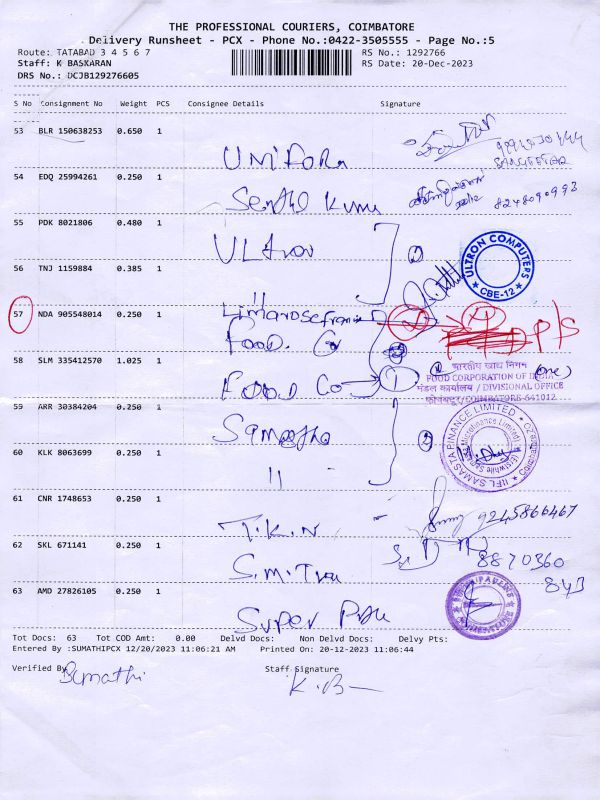 THE PROFESSIONAL COURIERS, COIMBATORE
Delivery Runsheet - PCX - Phone No.:0422-3505555 - Page No.:5
Route: TATABAD 3 4 5 6 7 RS No.: 1292766
Staff: K BASKARAN RS Date: 20-Dec-2023
DRS No.: DCJB129276605
S No Consignment No Weight PCS Consignee Details Signature
53 BLR 150638253 0.650 1
UNIFORM
54 EDQ 25994261 0.250 1
Senthil Kumar 8248090993
55 PDK 8021806 0.480 1
Ultron
ULTRON COMPUTERS
★ CBE-12 ★
56 TNJ 1159884 0.385 1
57 NDA 905548014 0.250 1
Food. Co
P/S
58 SLM 335412570 1.025 1
Food Co 1
भारतीय खाद्य निगम
FOOD CORPORATION OF INDIA
मंडल कार्यालय / DIVISIONAL OFFICE
कोयंबटूर/COIMBATORE-641012
59 ARR 30384204 0.250 1
Samastha
IIFL SAMASTA FINANCE LIMITED
60 KLK 8063699 0.250 1
11
61 CNR 1748653 0.250 1
T.K.N 9245866467
62 SKL 671141 0.250 1
S.M. 8870360
843
63 AMD 27826105 0.250 1
Super
COIMBATORE
Tot Docs: 63 Tot COD Amt: 0.00 Delvd Docs: Non Delvd Docs: Delvy Pts:
Entered By :SUMATHIPCX 12/20/2023 11:06:21 AM Printed On: 20-12-2023 11:06:44
Verified By Staff Signature
Sumathi K. B